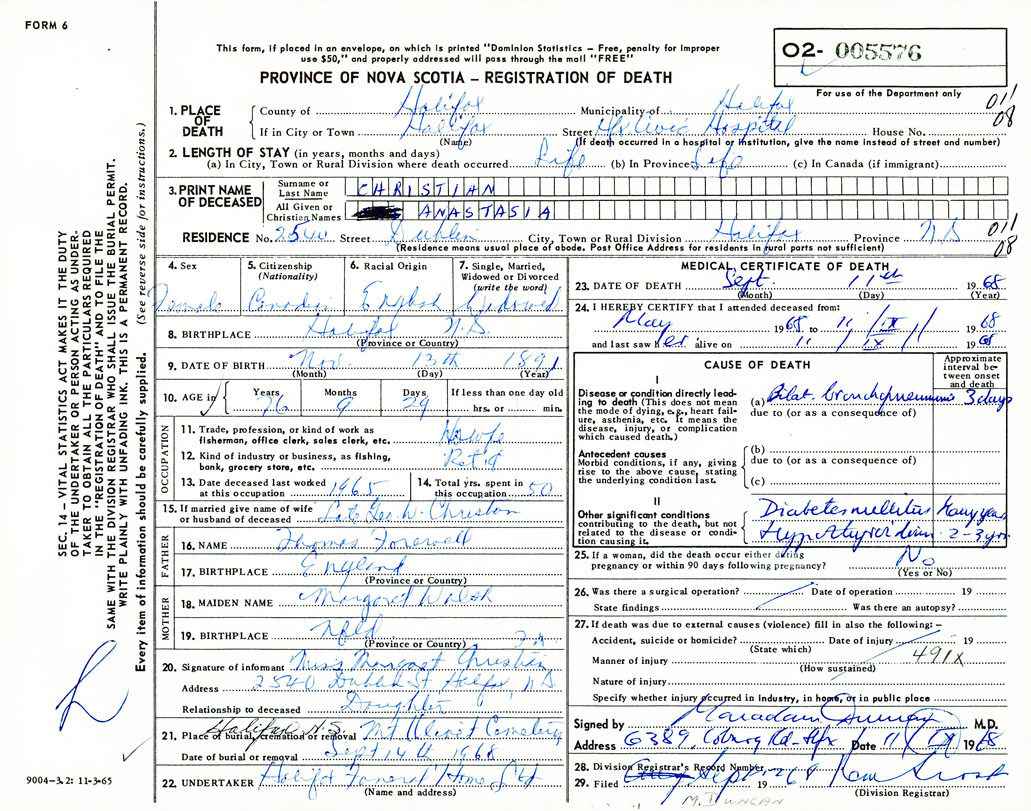 FORM 6
This form, if placed in an envelope, on which is printed "Dominion Statistics – Free, penalty for improper
use $50," and properly addressed will pass through the mail "FREE"
PROVINCE OF NOVA SCOTIA – REGISTRATION OF DEATH
O2- 005576
For use of the Department only
011
08
1. PLACE OF DEATH
County of Halifax Municipality of Halifax
If in City or Town Halifax Street Hfx Civic Hospital House No.
(Name) (If death occurred in a hospital or institution, give the name instead of street and number)
2. LENGTH OF STAY (in years, months and days)
(a) In City, Town or Rural Division where death occurred Life (b) In Province Life (c) In Canada (if immigrant)
3. PRINT NAME OF DECEASED
Surname or Last Name CHRISTIAN
All Given or Christian Names ANASTASIA
RESIDENCE No. 2540 Street Dublin City, Town or Rural Division Halifax Province N.S
(Residence means usual place of abode. Post Office Address for residents in rural parts not sufficient)
011
08
4. Sex
Female
5. Citizenship
(Nationality)
Canadian
6. Racial Origin
English
7. Single, Married,
Widowed or Divorced
(write the word)
Widowed
8. BIRTHPLACE Halifax N.S
(Province or Country)
9. DATE OF BIRTH Nov. 13th 1891
(Month) (Day) (Year)
10. AGE in
Years Months Days If less than one day old
76 9 29 hrs. or min.
OCCUPATION
11. Trade, profession, or kind of work as
fisherman, office clerk, sales clerk, etc. Hswfe
12. Kind of industry or business, as fishing,
bank, grocery store, etc. Ret'd
13. Date deceased last worked
at this occupation 1965
14. Total yrs. spent in
this occupation 50
15. If married give name of wife
or husband of deceased Late Geo. W. Christian
FATHER
16. NAME Thomas Farewell
17. BIRTHPLACE England
(Province or Country)
MOTHER
18. MAIDEN NAME Margaret Walsh
19. BIRTHPLACE Nfld
(Province or Country)
20. Signature of informant Miss Margaret Christian
Address 2540 Dublin St Halifax N.S
Relationship to deceased Daughter
21. Place of burial, cremation or removal Halifax N.S. Mt Olivet Cemetery
Date of burial or removal Sept 14th 1968
22. UNDERTAKER Halifax Funeral Home Ltd
(Name and address)
MEDICAL CERTIFICATE OF DEATH
23. DATE OF DEATH Sept. 11th 1968
(Month) (Day) (Year)
24. I HEREBY CERTIFY that I attended deceased from:
May 1968 to 11 / IX / 1968
and last saw her alive on 11 / IX / 1968
CAUSE OF DEATH
Approximate
interval be-
tween onset
and death
I
Disease or condition directly lead-
ing to death (This does not mean
the mode of dying, e.g., heart fail-
ure, asthenia, etc. It means the
disease, injury, or complication
which caused death.)
(a) Bilat. bronchopneumonia 3 days
due to (or as a consequence of)
Antecedent causes
Morbid conditions, if any, giving
rise to the above cause, stating
the underlying condition last.
(b)
due to (or as a consequence of)
(c)
II
Other significant conditions
contributing to the death, but not
related to the disease or condi-
tion causing it.
Diabetes mellitus Many years
Hypothyroidism 2-3 yrs.
25. If a woman, did the death occur either during
pregnancy or within 90 days following pregnancy? No
(Yes or No)
26. Was there a surgical operation? Date of operation 19
State findings Was there an autopsy?
27. If death was due to external causes (violence) fill in also the following: –
Accident, suicide or homicide? Date of injury 19
(State which)
491X
Manner of injury
(How sustained)
Nature of injury
Specify whether injury occurred in industry, in home, or in public place
Signed by M.D.
Address 6389 Coburg Rd-Hfx Date 11 / IX / 1968
28. Division Registrar's Record Number
29. Filed Sept. 1968
(Division Registrar)
M. DUNCAN
SEC. 14 – VITAL STATISTICS ACT MAKES IT THE DUTY
OF THE UNDERTAKER OR PERSON ACTING AS UNDER-
TAKER TO OBTAIN ALL THE PARTICULARS REQUIRED
IN THE "REGISTRATION OF DEATH" AND TO FILE THE
SAME WITH THE DIVISION REGISTRAR WHO SHALL ISSUE THE BURIAL PERMIT.
WRITE PLAINLY WITH UNFADING INK. THIS IS A PERMANENT RECORD.
Every item of information should be carefully supplied. (See reverse side for instructions.)
9004-3.2: 11-3-65